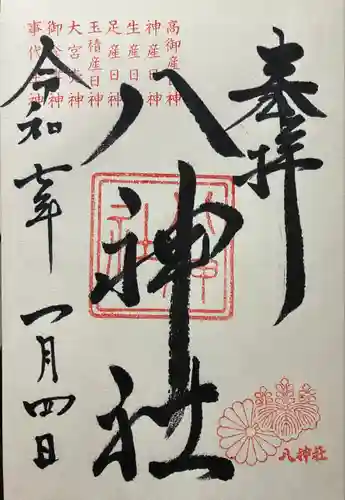 奉拝
高御産日神
神産日神
生産日神
足産日神
玉積産日神
大宮売神
御食津神
事代主神
八神社
令和七年
一月四日
八神社